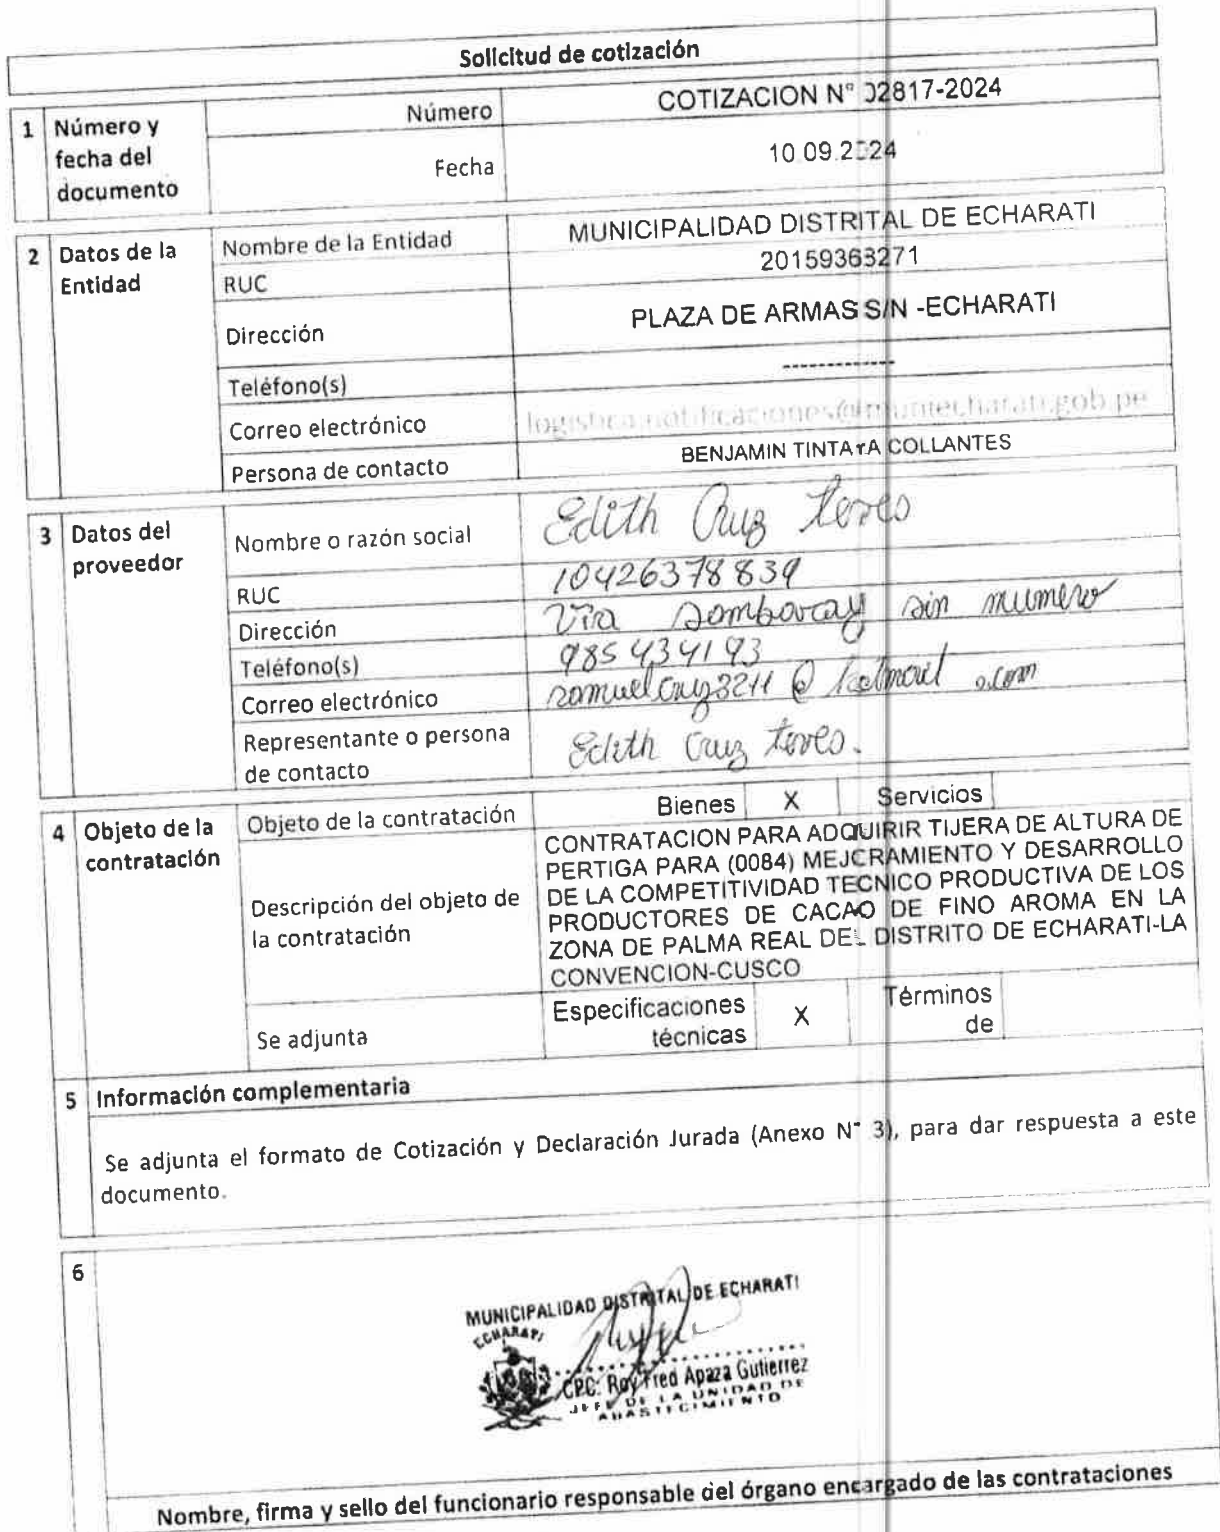 Solicitud de cotización
1 Número y fecha del documento
Número COTIZACION N° 02817-2024
Fecha 10.09.2024
2 Datos de la Entidad
Nombre de la Entidad MUNICIPALIDAD DISTRITAL DE ECHARATI
RUC 20159363271
Dirección PLAZA DE ARMAS S/N -ECHARATI
Teléfono(s) -------------
Correo electrónico logistica.notificaciones@muniecharati.gob.pe
Persona de contacto BENJAMIN COLLANTES
3 Datos del proveedor
Nombre o razón social Edith Cruz
RUC 10426378839
Dirección Via sin numero
Teléfono(s) 985434193
Correo electrónico
Representante o persona de contacto Edith Cruz
4 Objeto de la contratación
Objeto de la contratación Bienes X Servicios
Descripción del objeto de la contratación
CONTRATACION PARA ADQUIRIR TIJERA DE ALTURA DE
PERTIGA PARA (0084) MEJORAMIENTO Y DESARROLLO
DE LA COMPETITIVIDAD TECNICO PRODUCTIVA DE LOS
PRODUCTORES DE CACAO DE FINO AROMA EN LA
ZONA DE PALMA REAL DEL DISTRITO DE ECHARATI-LA
CONVENCION-CUSCO
Se adjunta Especificaciones técnicas X Términos de
5 Información complementaria
Se adjunta el formato de Cotización y Declaración Jurada (Anexo N° 3), para dar respuesta a este
documento.
6
MUNICIPALIDAD DISTRITAL DE ECHARATI
ECHARATI
CPC. Roy Fred Apaza Gutierrez
JEFE DE LA UNIDAD DE
ABASTECIMIENTO
Nombre, firma y sello del funcionario responsable del órgano encargado de las contrataciones